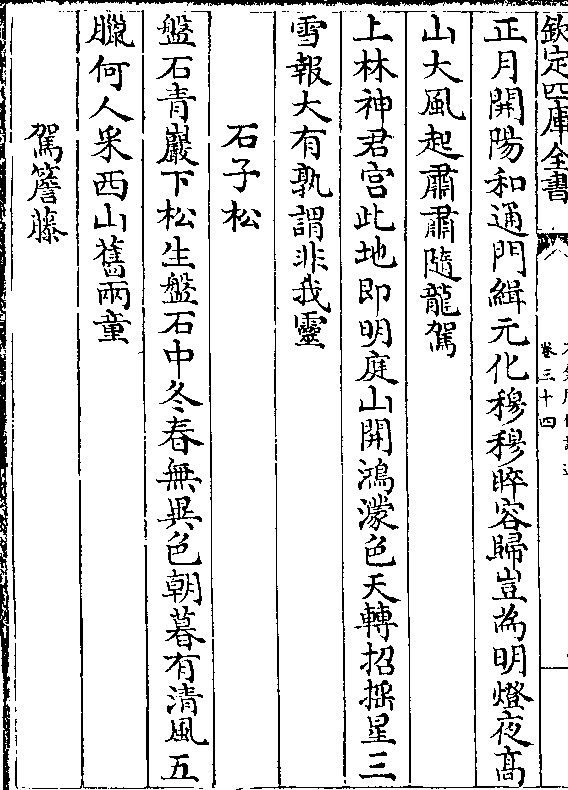 欽定四庫全書
卷三十四
正月開陽和通門緝元化穆穆睟容歸豈為明燈夜高
山大風起肅肅隨龍駕
上林神君宮此地即明庭山開鴻濛色天轉招摇星三
雪報大有孰謂非我靈
石子松
盤石青巖下松生盤石中冬春無異色朝暮有清風五
臘何人采西山舊兩童
駕簷藤